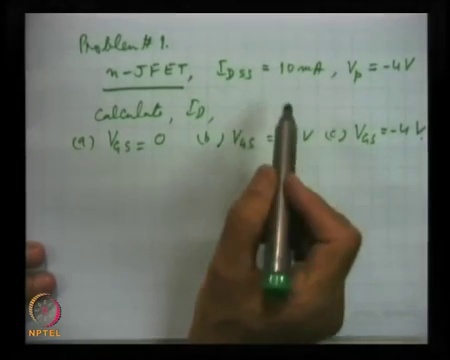 Problem # 1.
n-JFET, I_DSS = 10 mA, V_p = -4V
Calculate, I_D,
(a) V_GS = 0 (b) V_GS = V (c) V_GS = -4 V.
NPTEL